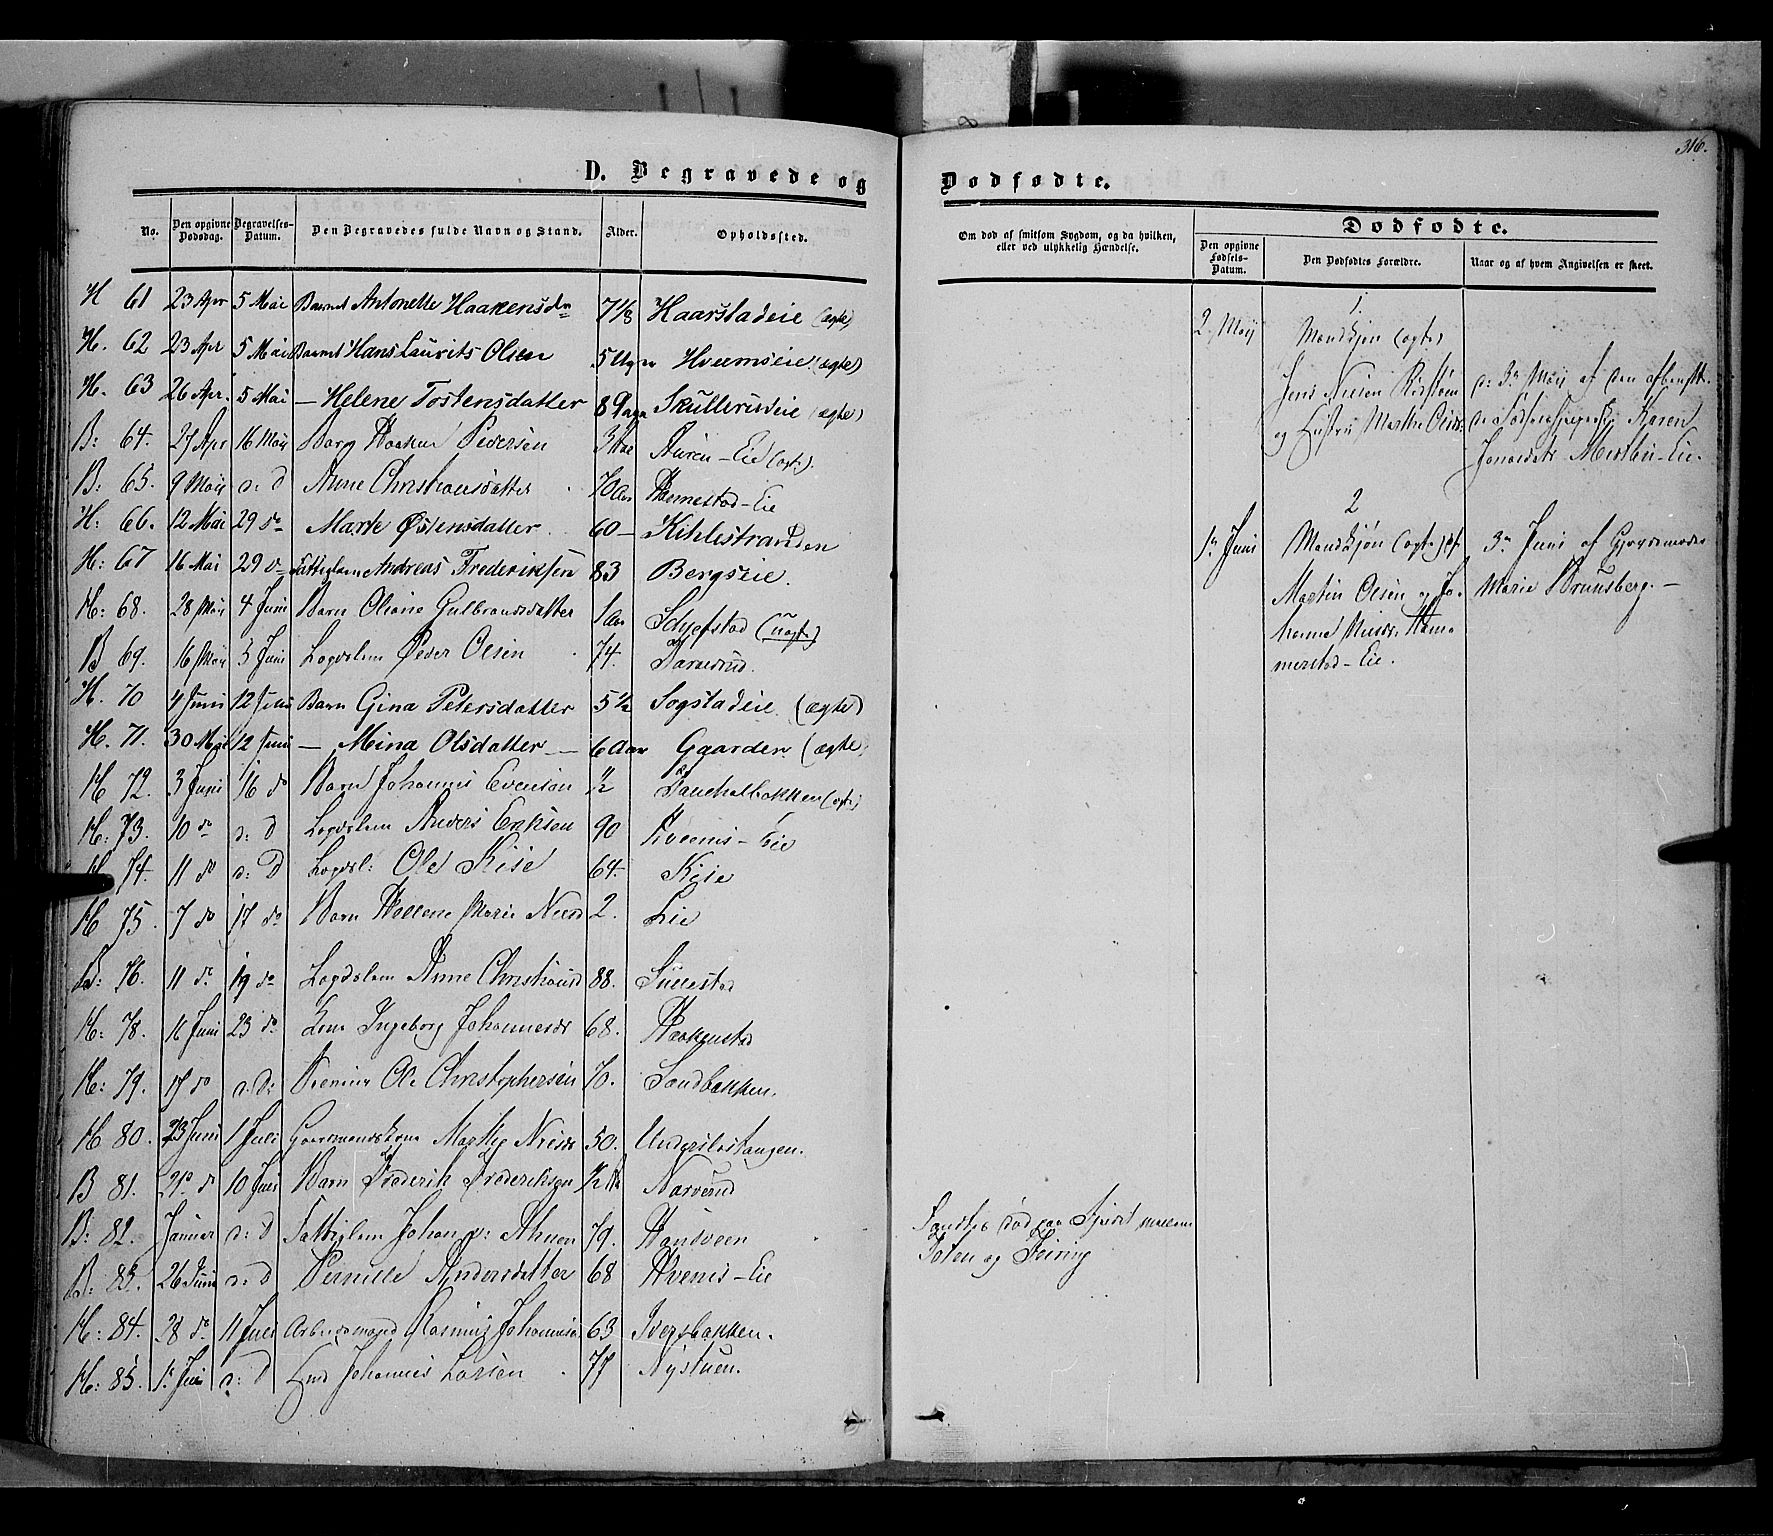 316.
D. Begravede og Dødfødte.
No. Den opgivne Dødsdag. Begravelses-Datum. Den Begravedes fulde Navn og Stand. Alder. Opholdssted.
Om død af smitsom Sygdom, og da hvilken, eller ved ulykkelig Hændelse.
Dødfødte.
Den opgivne Fødsels-Datum. Den Dødfødtes Forældre. Naar og af hvem Angivelsen er skeet.
H 61 23 Apr 5 Mai Barnet Antonette Haakensd 7 1/8 Haarstadeie (ægte)
H. 62 23 Apr 5 Mai Barnet Hans Laurits Olsen 5 Ugr Hveemseie (ægte)
H. 63 26 Apr. 5 Mai — Helene Tostensdatter 8 Dage Skullerudeie (ægte)
B: 64. 27 Apr 16 Maij Barn Haaken Pedersen 3 Aar Auren-Eie (ægte).
B: 65. 9 Maij d: D Anne Christiansdatter 70 Aar Hannestad-Eie
H: 66. 12 Mai 29 do Marte Østensdatter 60 — Kihlestranden
H: 67 16 Mai 29 do Fattiglem Andreas Frederiksen 83 Bergseie.
H: 68. 28 Maij 4 Juni Barn Oliane Gulbrandsdatter 1 Aar (uægte)
B 69. 16 Maij 5 Juni Logdslem Peder Olsen 74.
H. 70 4 Juni 12 Juni Barn Gina Petersdatter 5 1/2 Sogstadeie (ægte)
H. 71. 30 Mai 12 Juni — Mina Olsdatter — 6 Aar Gaarder (ægte)
H 72. 3 Juni 16 do Barn Johannes Evensen 1/2
H: 73. 10 do d: D Logdslem Anders Eriksen 90 Hveems-Eie
H 74. 11 do d: D Logdsl: Ole Kise 64. Kise
H 75. 7 do 17 do Barn Hellene Marie Nilsd 2. Lie
B: 76. 11 do 19 do Logdslem Anne Christiansd 88. Sullestad
H: 78. 16 Juni 23 do Kone Ingeborg Johannesdr 68. Haakenstad
H: 79. 17 do d: D: Ole Christophersen 70. Sandbakken.
H 80. 23 Juni 1 Juli Gaardmandskone Nilsdr 50.
B 81. 21 do 10 Juli Barn Frederik Frederiksen 1/2 Narverud
B: 82. Januar d: D Fattiglem Johan 79. Hansveen
B: 83. 26 Juni d: D Pernille Andersdatter 68 Hveems-Eie
H: 84. 28 do 11 Juli Arbeidsmand Rasmus Johannesen 63 Iversbakken.
H: 85. 1 Juli d: D Johannes Larsen 77 Nystuen.
Fandtes død paa mellem
Toten og Feiring
1.
2 Maij Mandkjøn (ægte)
Jens Nielsen
og Hustru Marthe Olsdr
d: 3 Maij af den
Karen
2
1 Juni Mandkjøn (ægte) af
Martin Olsen og Jo-
hanne Nilsdr. Ham-
merstad-Eie.
3 Juni af Gjordemoder
Marie Brunsberg. —